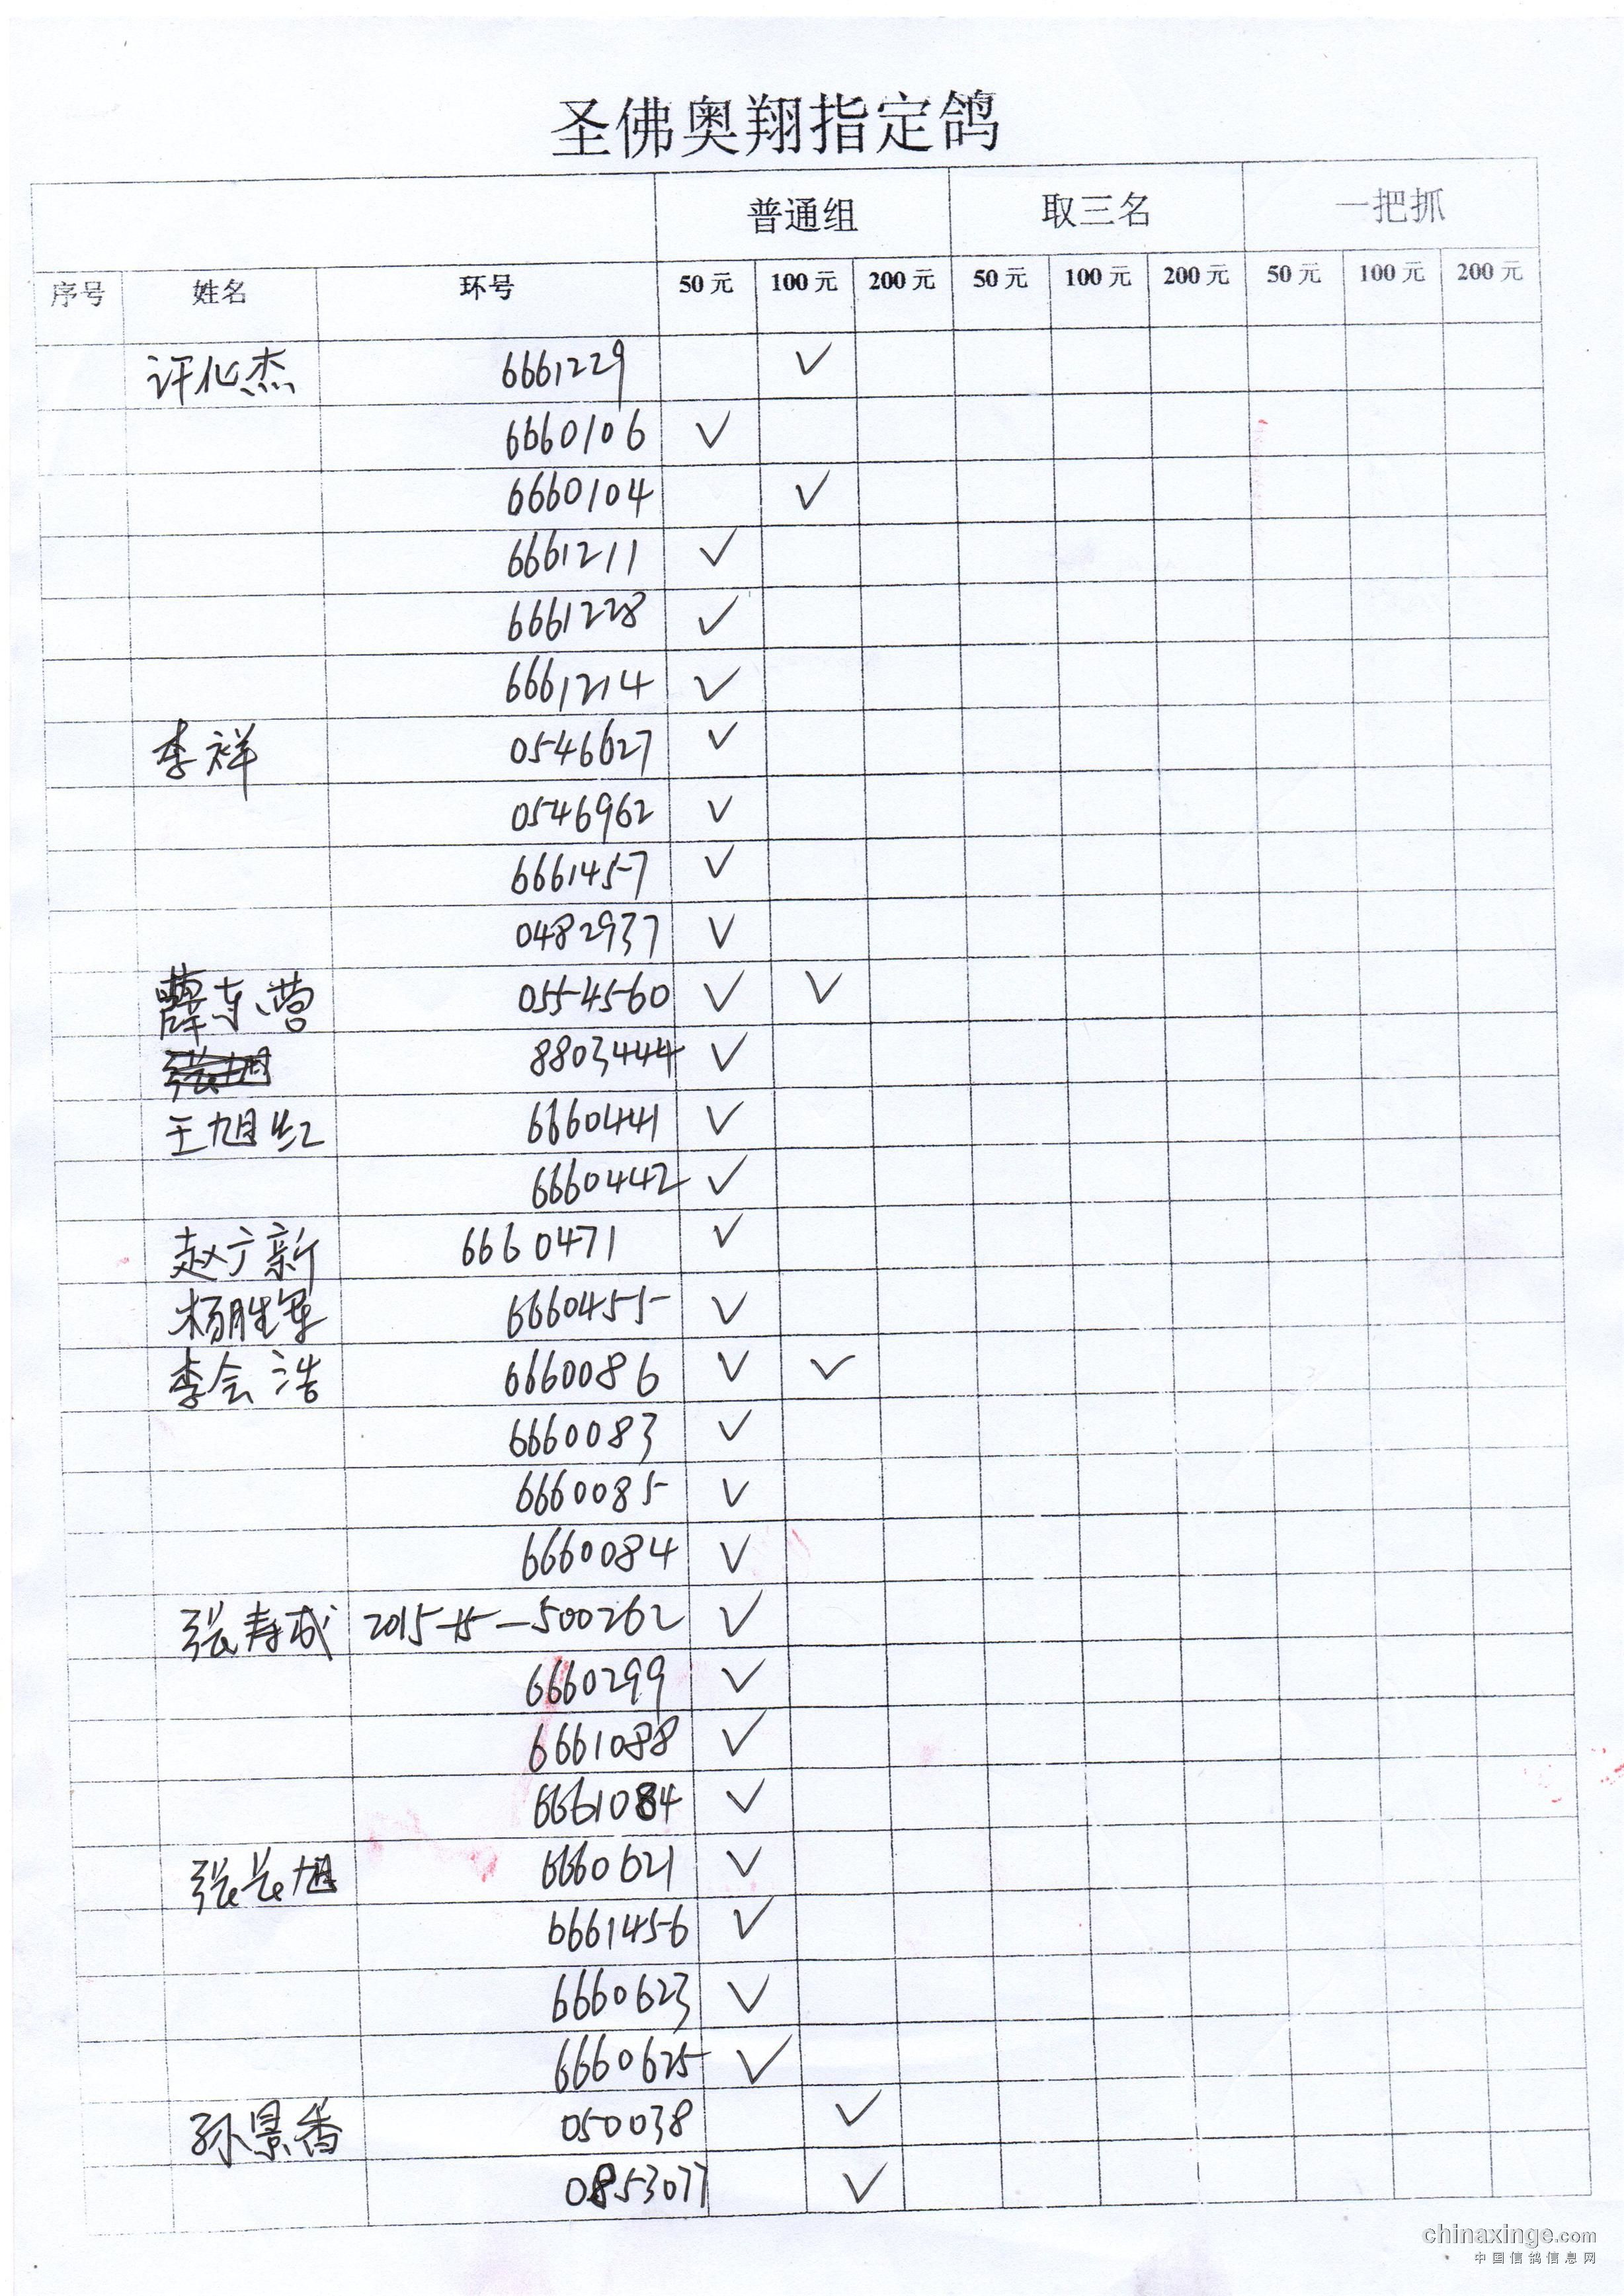 圣佛奥翔指定鸽
普通组 取三名 一把抓
序号 姓名 环号 50元 100元 200元 50元 100元 200元 50元 100元 200元
许化杰 6661229 ✓
6660106 ✓
6660104 ✓
6661211 ✓
6661228 ✓
6661214 ✓
李祥 0546627 ✓
0546962 ✓
6661457 ✓
0482937 ✓
薛东营 0554560 ✓ ✓
8803444 ✓
王旭红 6660441 ✓
6660442 ✓
赵广新 6660471 ✓
杨胜军 6660455 ✓
李会浩 6660086 ✓ ✓
6660083 ✓
6660085 ✓
6660084 ✓
张寿成 2015-15-500262 ✓
6660299 ✓
6661088 ✓
6661084 ✓
张长旭 6660621 ✓
6661456 ✓
6660623 ✓
6660625 ✓
孙景香 050038 ✓
0853077 ✓
chinaxinge.com
中国信鸽信息网